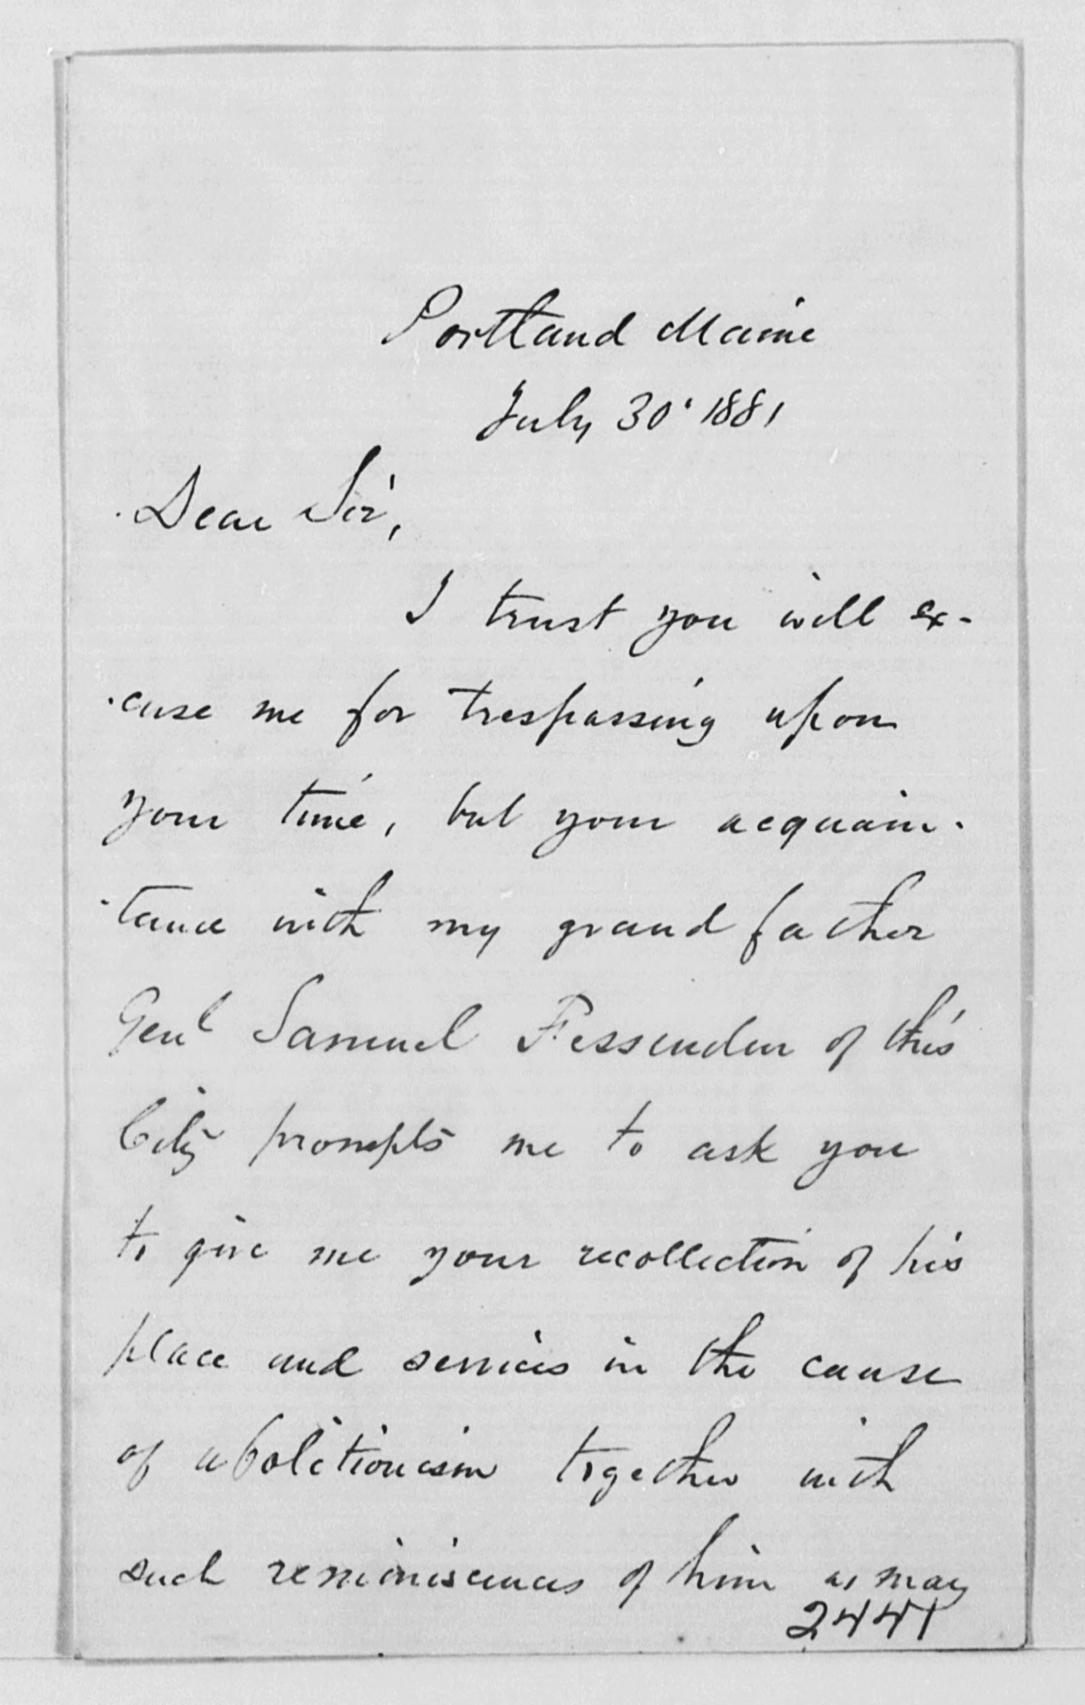 Portland Maine
July 30' 1881
Dear Sir,
I trust you will ex-
-cuse me for trespassing upon
your time, but your acquain-
-tance with my grand father
Genl Samuel Fessenden of this
City prompts me to ask you
to give me your recollection of his
place and services in the cause
of abolitionism together with
such reminiscences of him as may
2441